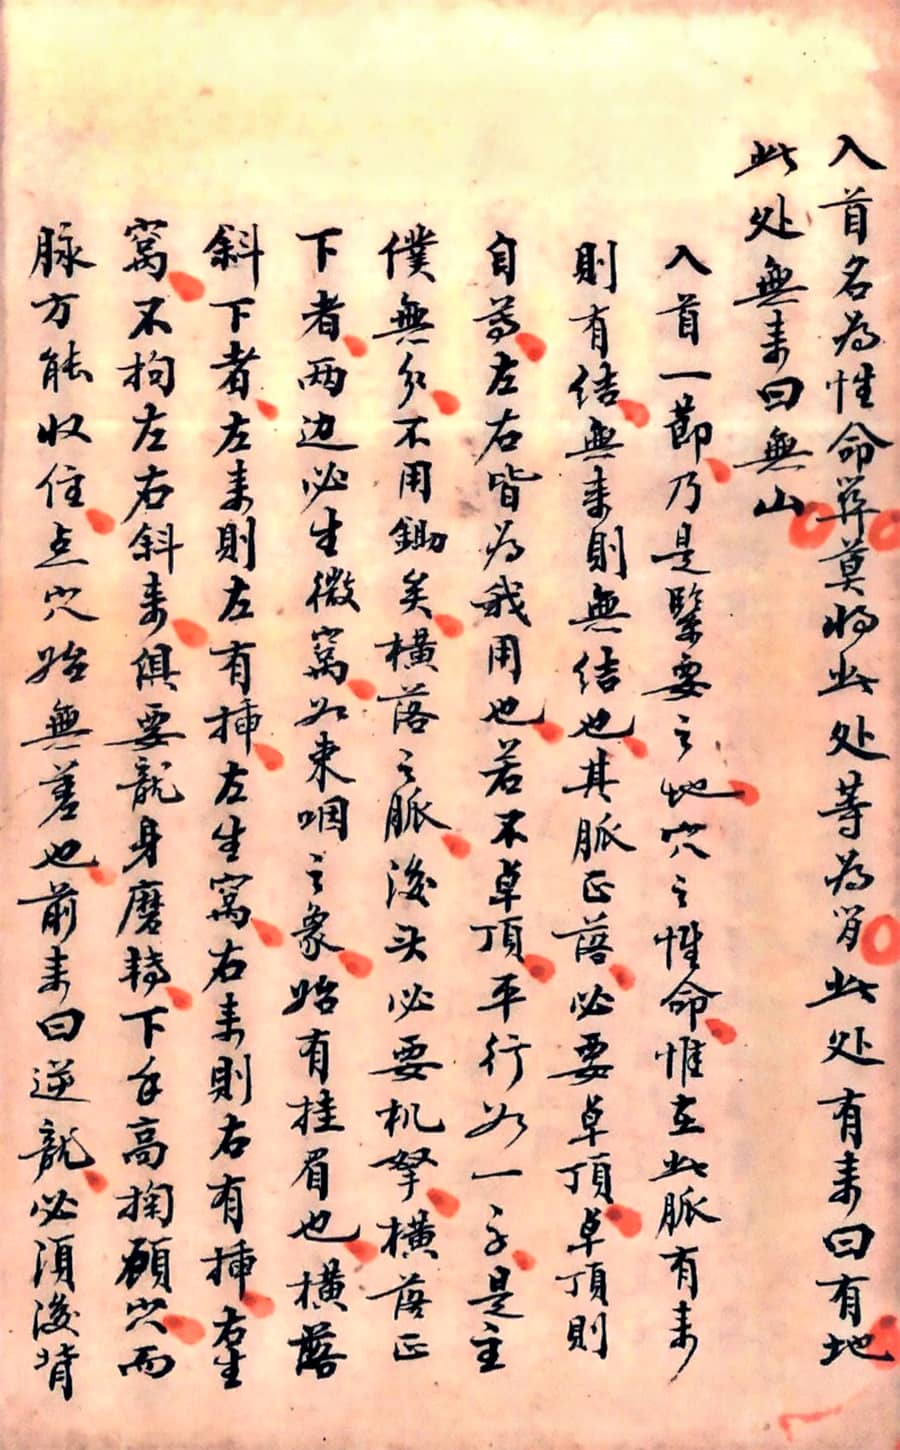 入首名為性命葬莫將此处等為肖此处有来曰有地
此处無来曰無山
入首一節乃是緊要之地穴之性命惟在此脈有来
則有结無来則無结也其脈正落必要卓頂卓頂則
自尊左右皆為我用也若不卓頂平行如一字是主
僕無分不用鋤矣横落之脈後头必要机拏横落正
下者两边必生微窩如束咽之象始有挂眉也横落
斜下者左来則左有插左生窩右来則右有插右生
窩不拘左右斜来俱要龍身磨轉下手高掬顧穴而
脉方能收住点穴始無差也前来曰逆龍必須後背